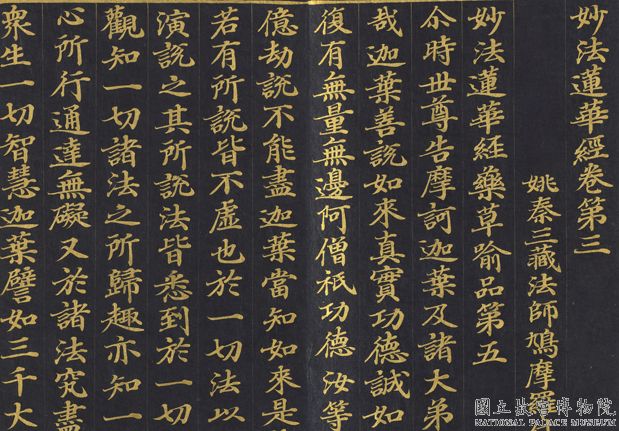 妙法蓮華經卷第三
姚秦三藏法師鳩摩羅
妙法蓮華經藥草喻品第五
尒時世尊告摩訶迦葉及諸大弟
㢤迦葉善說如來真實功德誠如
復有無量無邊阿僧祇功德汝等
億劫說不能盡迦葉當知如來是
若有所說皆不虛也於一切法以
演說之其所說法皆悉到於一切
觀知一切諸法之所歸趣亦知一
心所行通達無礙又於諸法究盡
眾生一切智慧迦葉譬如三千大
國立故宮博物院
NATIONAL PALACE MUSEUM